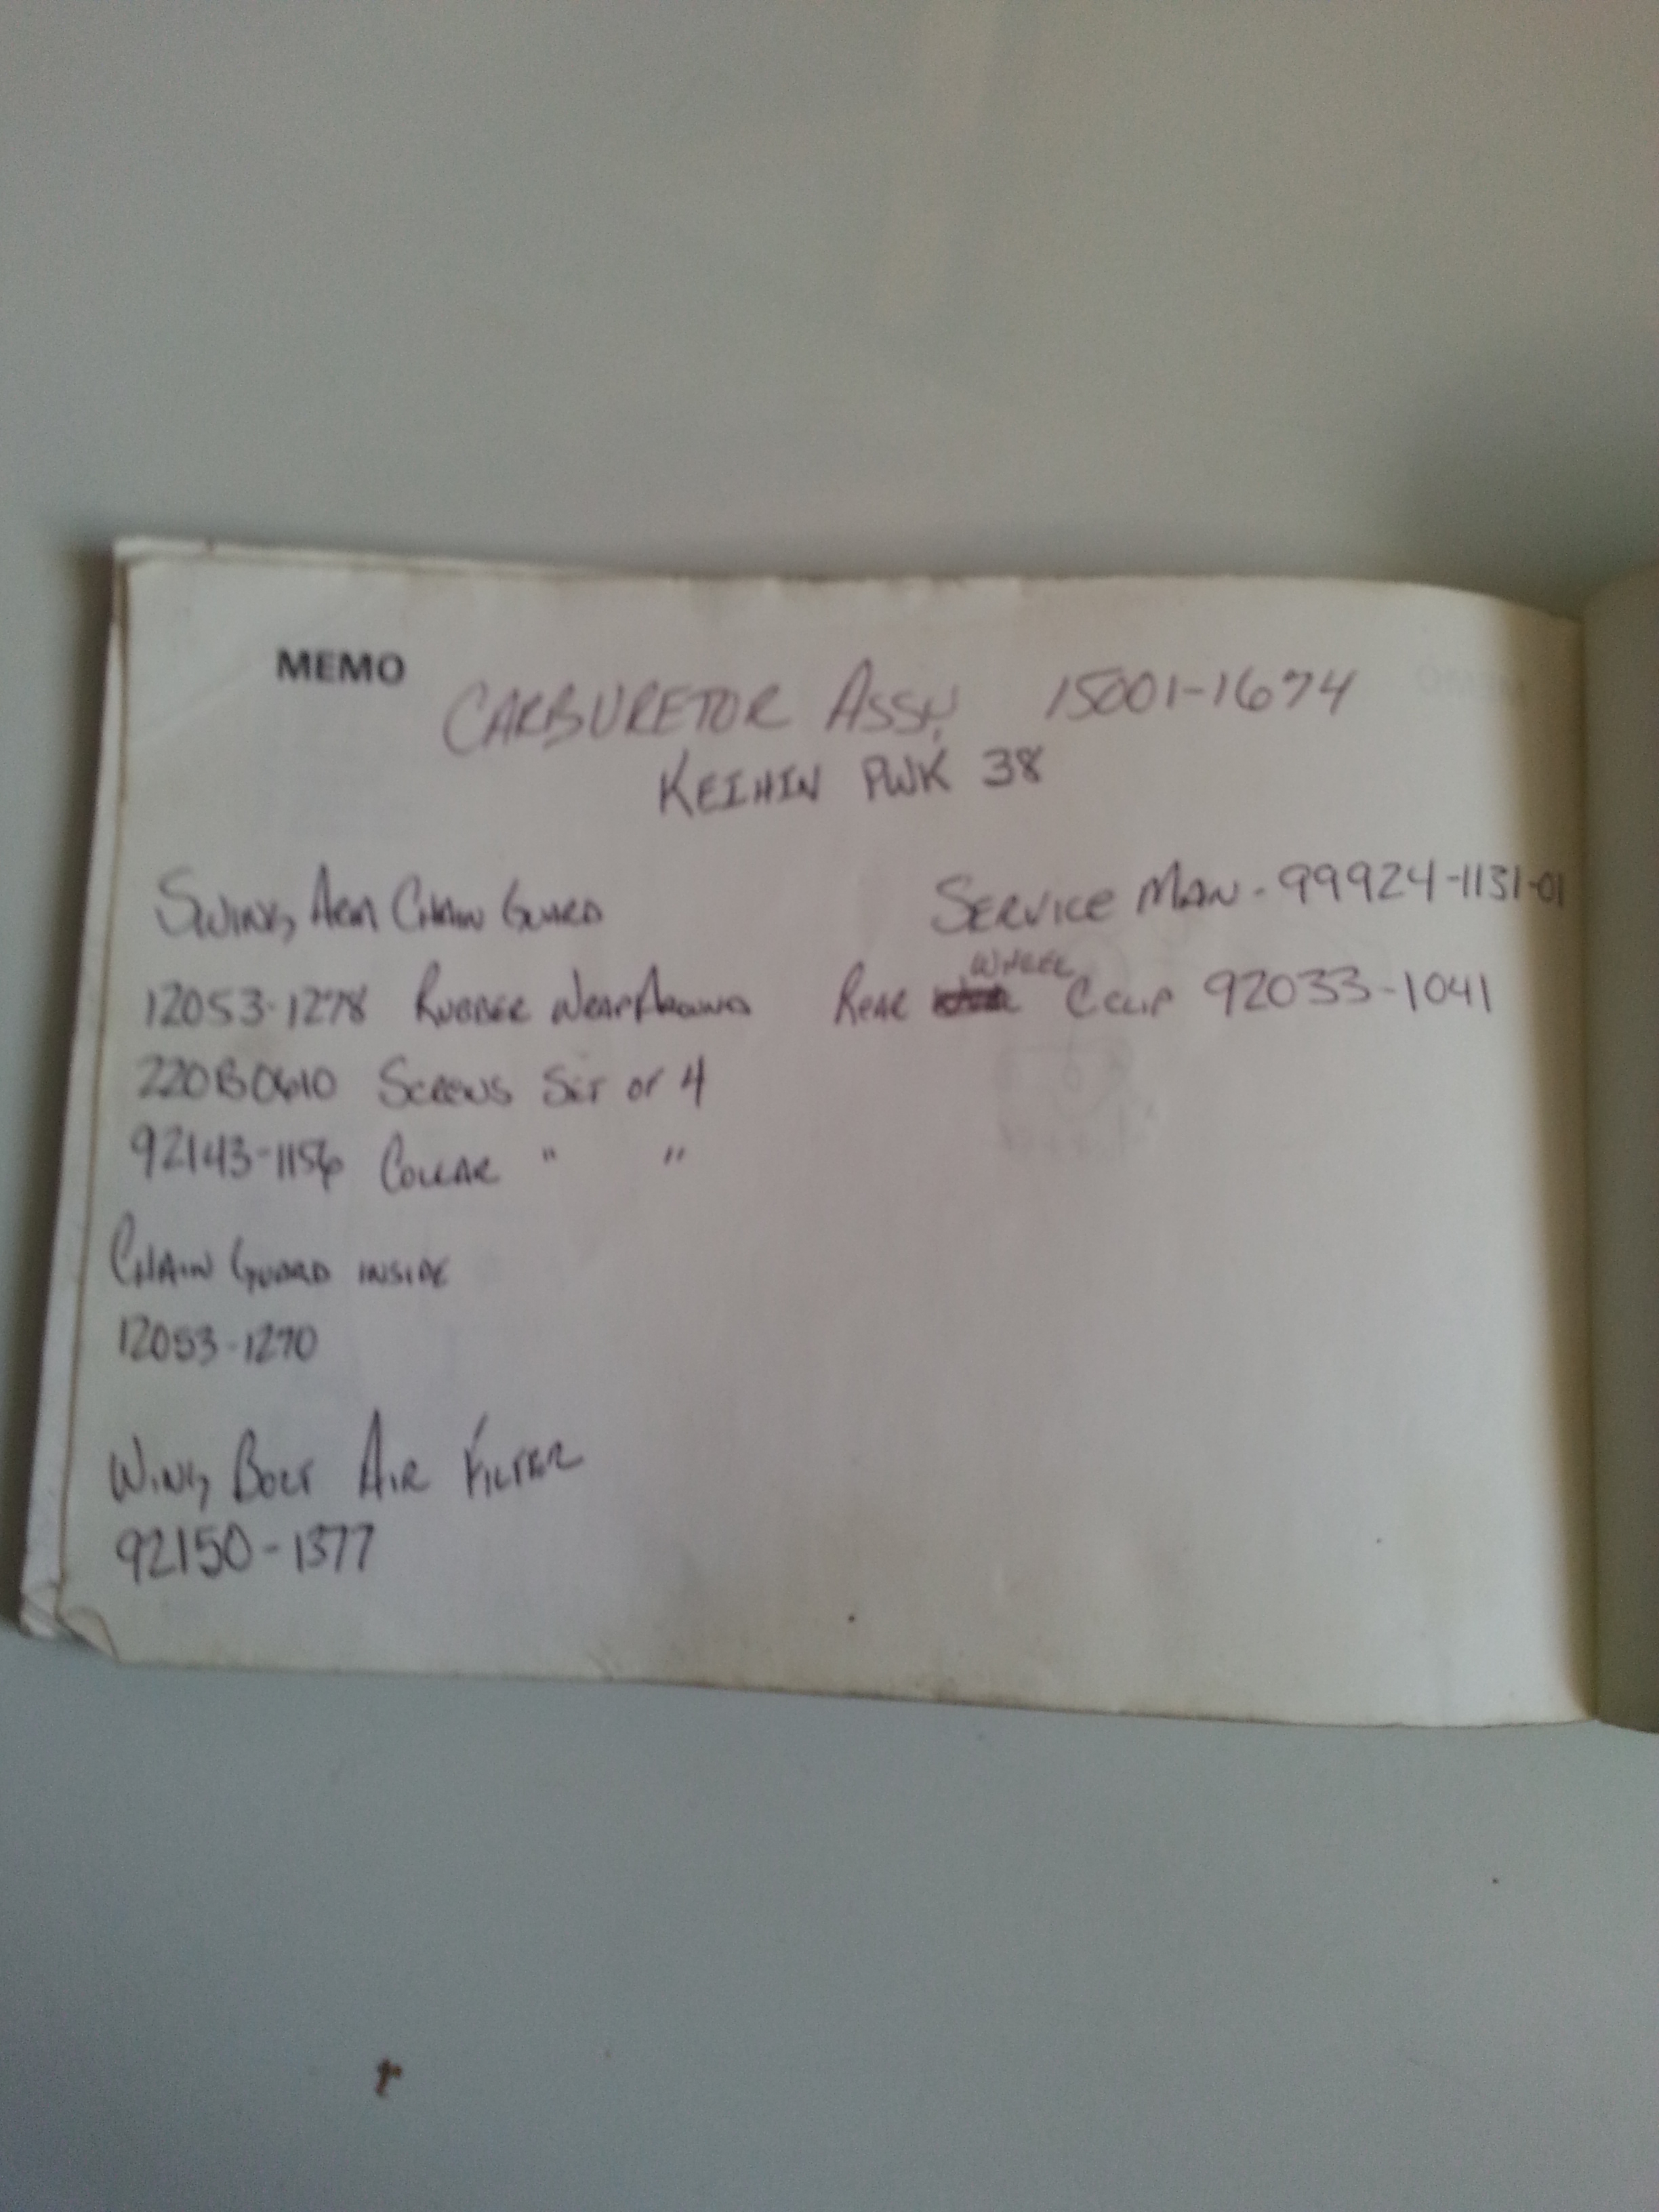 MEMO
CARBURETOR ASSY. 15001-1674
KEIHIN PWK 38
SWING ARM CHAIN GUARD
SERVICE MAN - 99924-1131-01
12053-1278 RUBBER WRAPAROUND
WHEEL
REAR C CLIP 92033-1041
220B0610 SCREWS SET OF 4
92143-1156 COLLAR " "
CHAIN GUARD INSIDE
12053-1270
WING BOLT AIR FILTER
92150-1377